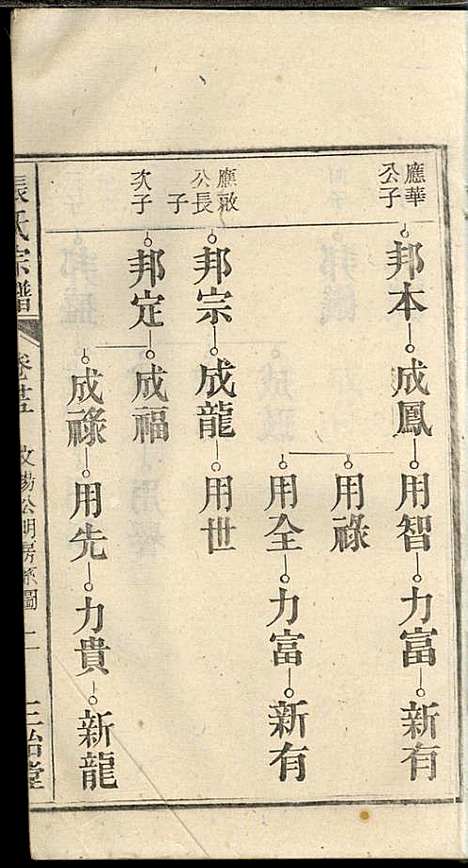 應華
公子
邦本 成鳳 用智 力富 新有
用祿
用全 力富 新有
應啟
公長
子
邦宗 成龍 用世
次子
邦定 成福
成祿 用先 力貴 新龍
張氏宗譜 卷 二 三治堂